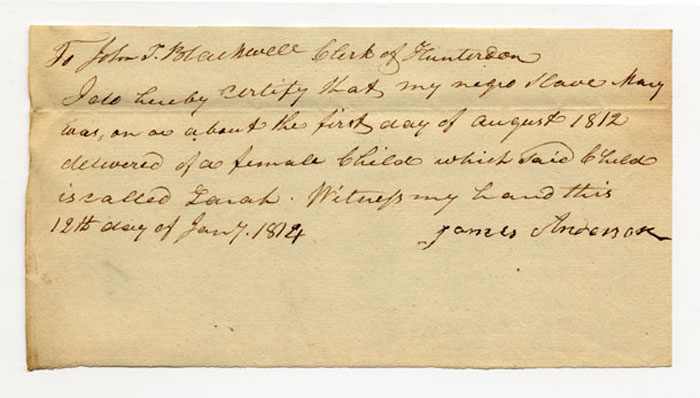 To John T. Blackwell Clerk of Hunterdon
I do hereby certify that my negro slave Mary
was, on or about the first day of august 1812
delivered of a female Child which said Child
is called Zarah. Witness my hand this
12th day of Jany. 1814
James Anderson